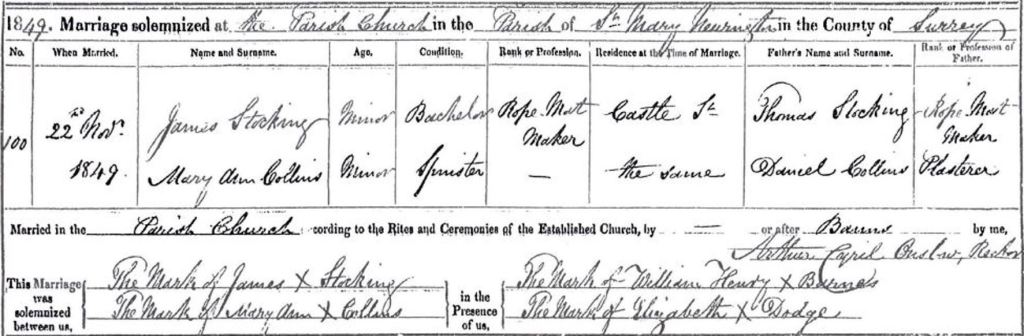 1849. Marriage solemnized at the Parish Church in the Parish of St. Mary Newington in the County of Surrey
No. When Married. Name and Surname. Age. Condition. Rank or Profession. Residence at the Time of Marriage. Father's Name and Surname. Rank or Profession of Father.
100 22nd Novr. 1849. James Stocking Minor Bachelor Rope Mat Maker Castle St Thomas Stocking Rope Mat Maker
Mary Ann Collins Minor Spinster — the same Daniel Collins Plasterer
Married in the Parish Church cording to the Rites and Ceremonies of the Established Church, by — or after Banns by me,
Arthur Cyril Onslow, Rector
This Marriage was solemnized between us,
The Mark of James X Stocking
The Mark of Mary Ann X Collins
in the Presence of us,
The Mark of William Henry X Barnes
The Mark of Elizabeth X Dodge